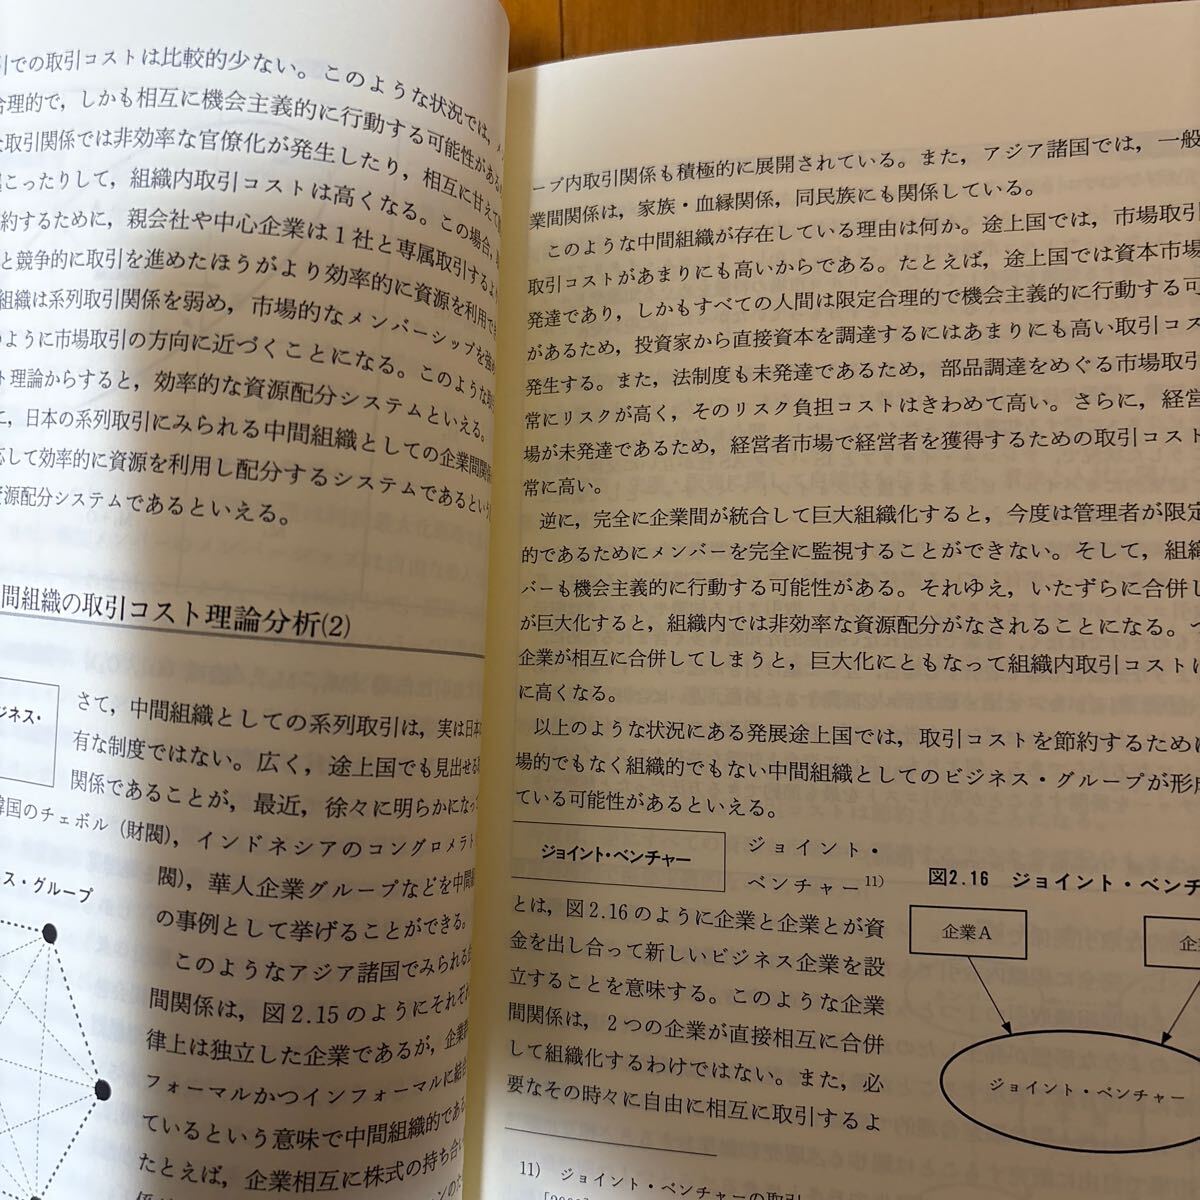 引での取引コストは比較的少ない。このような状況では，メ
合理的で，しかも相互に機会主義的に行動する可能性がある
な取引関係では非効率な官僚化が発生したり，相互に甘えて
起こったりして，組織内取引コストは高くなる。この場合，
約するために，親会社や中心企業は1社と専属取引するよ
と競争的に取引を進めたほうがより効率的に資源を利用でき
組織は系列取引関係を弱め，市場的なメンバーシップを強め
のように市場取引の方向に近づくことになる。このような
ト理論からすると，効率的な資源配分システムといえる。
に，日本の系列取引にみられる中間組織としての企業間関係
応じて効率的に資源を利用し配分するシステムであるという
資源配分システムであるといえる。
間組織の取引コスト理論分析(2)
ジネス・
さて，中間組織としての系列取引は，実は日本
有な制度ではない。広く，途上国でも見出せる
関係であることが，最近，徐々に明らかになっ
韓国のチェボル（財閥），インドネシアのコングロメラト
閥），華人企業グループなどを中間
の事例として挙げることができる。
ス・グループ
このようなアジア諸国でみられる企
間関係は，図2.15のようにそれぞれ
律上は独立した企業であるが，企業
フォーマルかつインフォーマルに結合
ているという意味で中間組織的である
たとえば，企業相互に株式の持ち合い
ープ内取引関係も積極的に展開されている。また，アジア諸国では，一般
業間関係は，家族・血縁関係，同民族にも関係している。
このような中間組織が存在している理由は何か。途上国では，市場取引
取引コストがあまりにも高いからである。たとえば，途上国では資本市場
発達であり，しかもすべての人間は限定合理的で機会主義的に行動する可
があるため，投資家から直接資本を調達するにはあまりにも高い取引コス
発生する。また，法制度も未発達であるため，部品調達をめぐる市場取引
常にリスクが高く，そのリスク負担コストはきわめて高い。さらに，経営
場が未発達であるため，経営者市場で経営者を獲得するための取引コスト
常に高い。
逆に，完全に企業間が統合して巨大組織化すると，今度は管理者が限定
的であるためにメンバーを完全に監視することができない。そして，組織
バーも機会主義的に行動する可能性がある。それゆえ，いたずらに合併し
が巨大化すると，組織内では非効率な資源配分がなされることになる。つ
企業が相互に合併してしまうと，巨大化にともなって組織内取引コストは
に高くなる。
以上のような状況にある発展途上国では，取引コストを節約するために
場的でもなく組織的でもない中間組織としてのビジネス・グループが形成
ている可能性があるといえる。
ジョイント・ベンチャー
ジョイント・
ベンチャー11)
とは，図2.16のように企業と企業とが資
金を出し合って新しいビジネス企業を設
立することを意味する。このような企業
間関係は，2つの企業が直接相互に合併
して組織化するわけではない。また，必
要なその時々に自由に相互に取引するよ
図2.16 ジョイント・ベンチ
企業A
企
ジョイント・ベンチャー
11) ジョイント・ベンチャーの取引